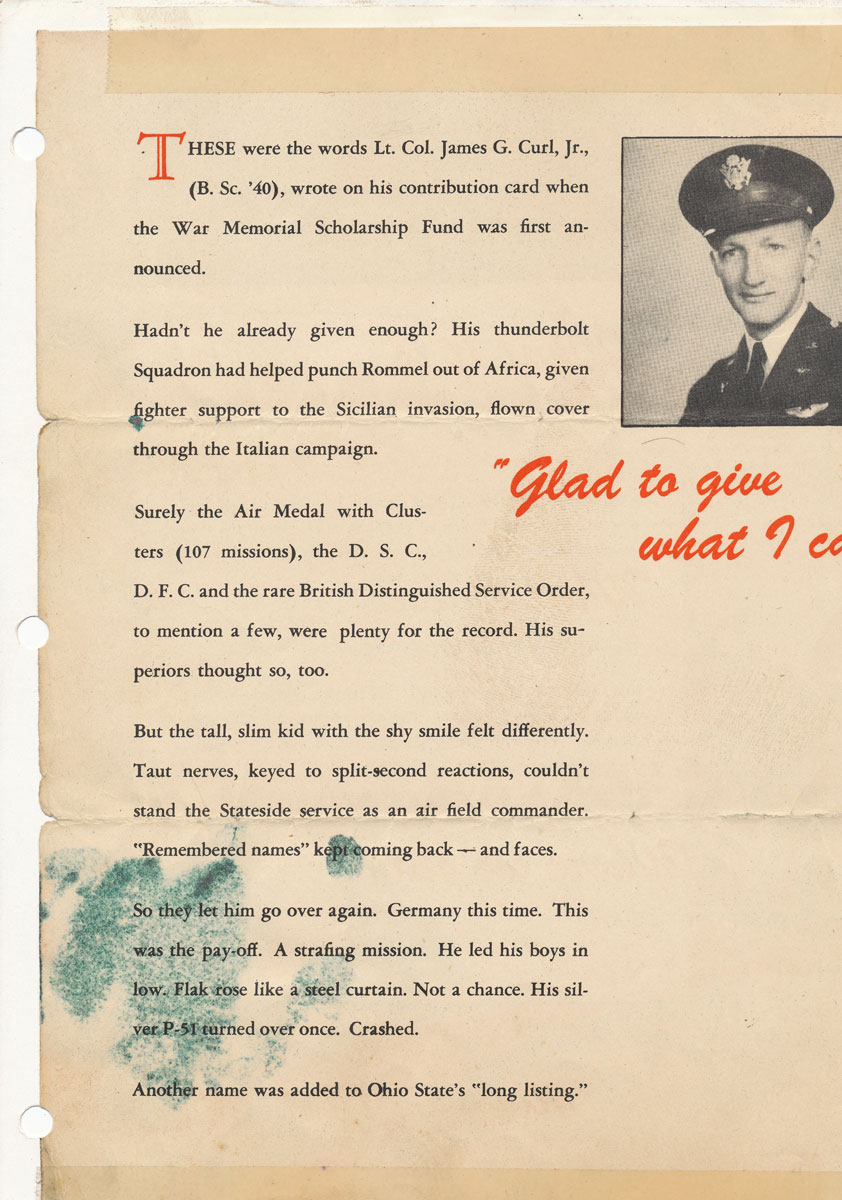 THESE were the words Lt. Col. James G. Curl, Jr.,
(B. Sc. '40), wrote on his contribution card when
the War Memorial Scholarship Fund was first an-
nounced.
Hadn't he already given enough? His thunderbolt
Squadron had helped punch Rommel out of Africa, given
fighter support to the Sicilian invasion, flown cover
through the Italian campaign.
"Glad to give
what I
Surely the Air Medal with Clus-
ters (107 missions), the D. S. C.,
D. F. C. and the rare British Distinguished Service Order,
to mention a few, were plenty for the record. His su-
periors thought so, too.
But the tall, slim kid with the shy smile felt differently.
Taut nerves, keyed to split-second reactions, couldn't
stand the Stateside service as an air field commander.
"Remembered names" kept coming back — and faces.
So they let him go over again. Germany this time. This
was the pay-off. A strafing mission. He led his boys in
low. Flak rose like a steel curtain. Not a chance. His sil-
ver P-51 turned over once. Crashed.
Another name was added to Ohio State's "long listing."